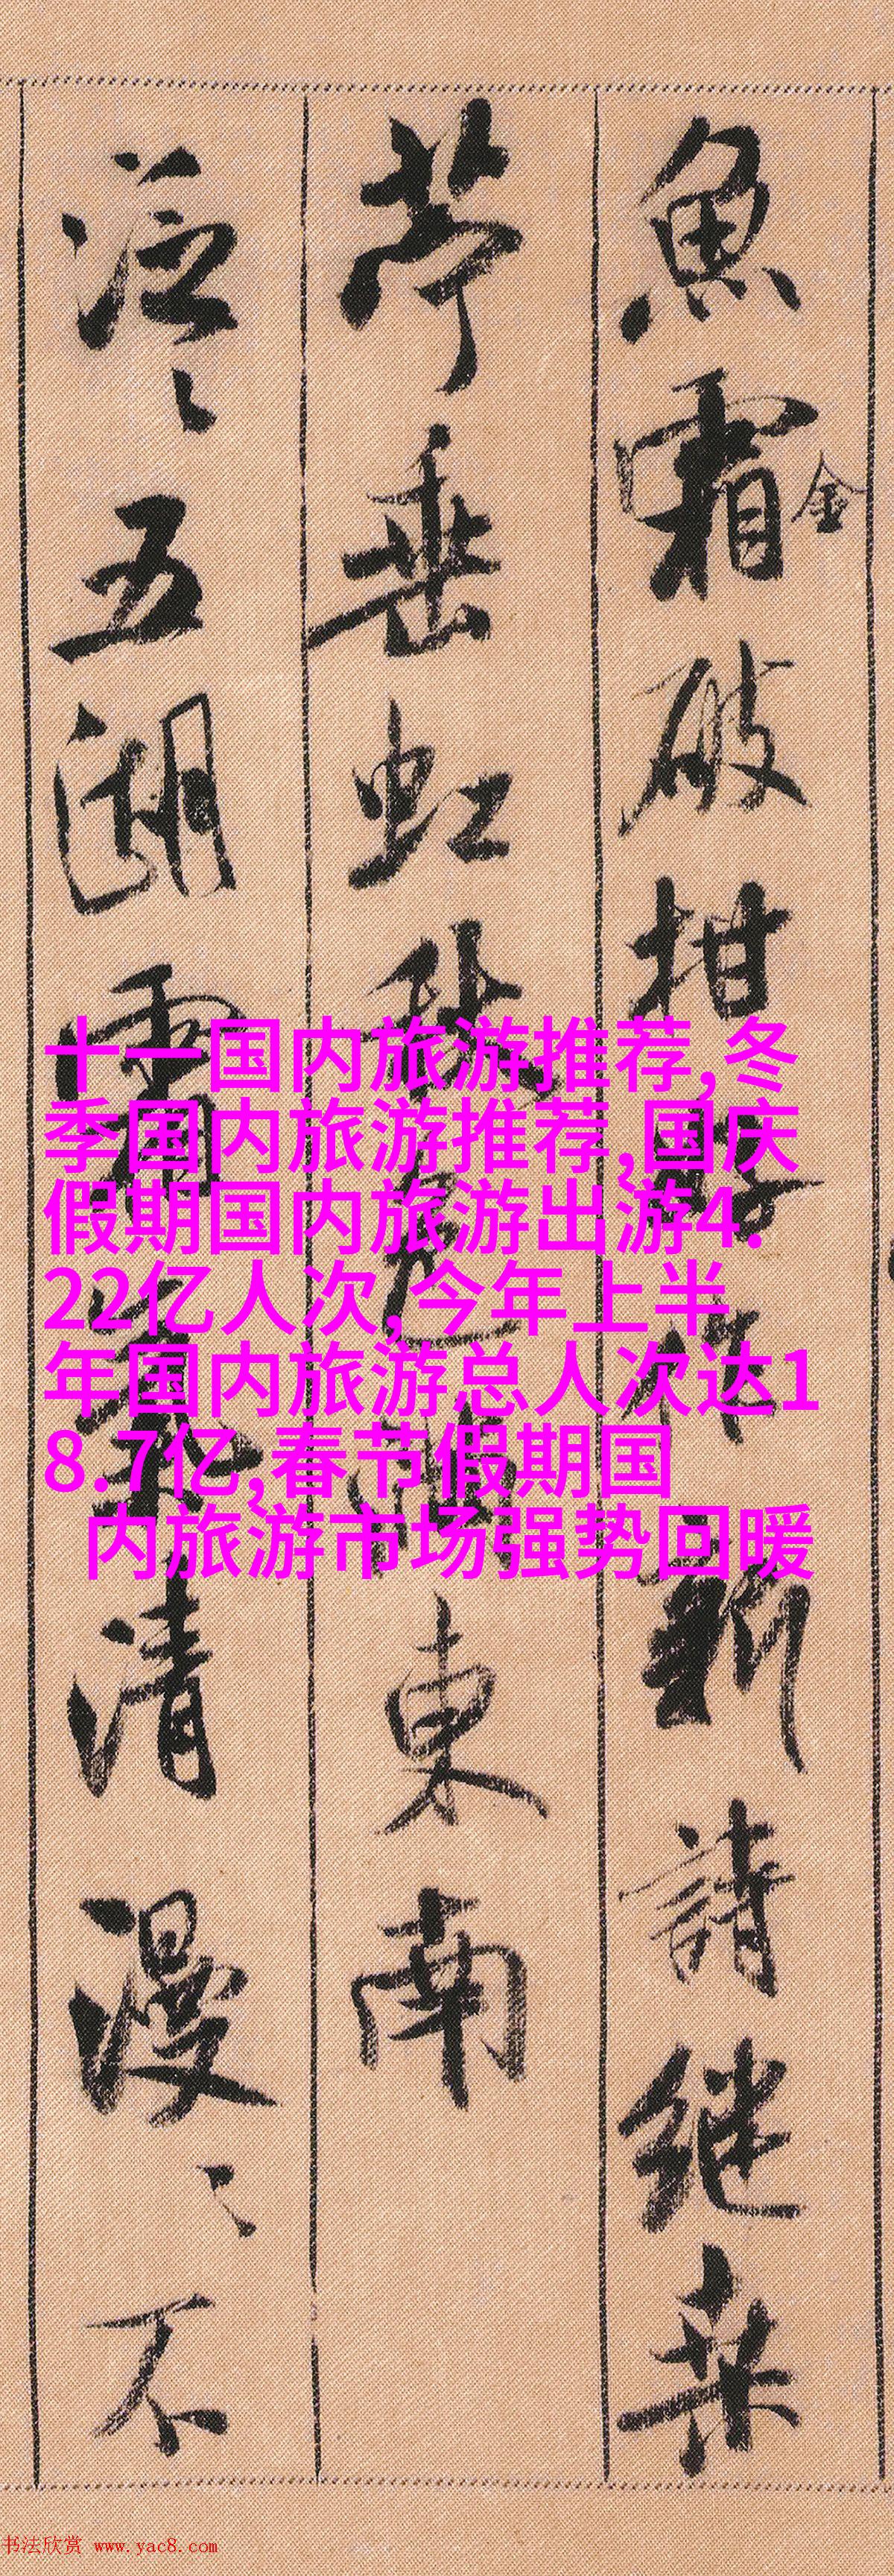 魚霜金破柑好作新詩继桑
苧垂虹秋色滿東南
泛〻五湖霜氣清漫〻不
十一国内旅游推荐,冬
季国内旅游推荐,国庆
假期国内旅游出游4.
22亿人次,今年上半
年国内旅游总人次达1
8.7亿,春节假期国
内旅游市场强势回暖
书法欣赏 www.yac8.com